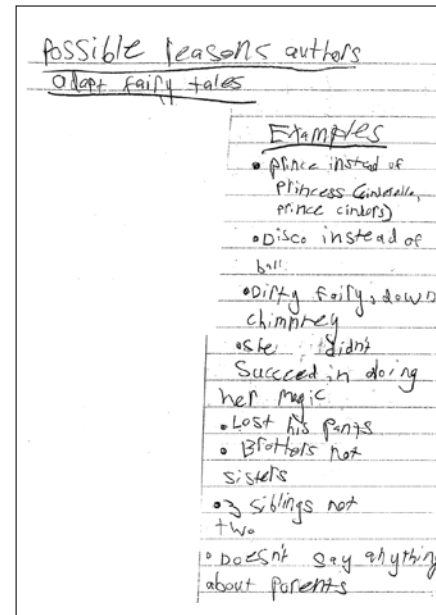 Possible reasons authors
adapt fairy tales
Examples
• Prince instead of
Princess (Cinderella,
prince cinders)
• Disco instead of
ball
• Dirty fairy, down
chimphey
• She didn't
Succeed in doing
her magic
• Lost his pants
• Brothers not
sisters
• 3 siblings not
two
• Doesn't say anything
about parents